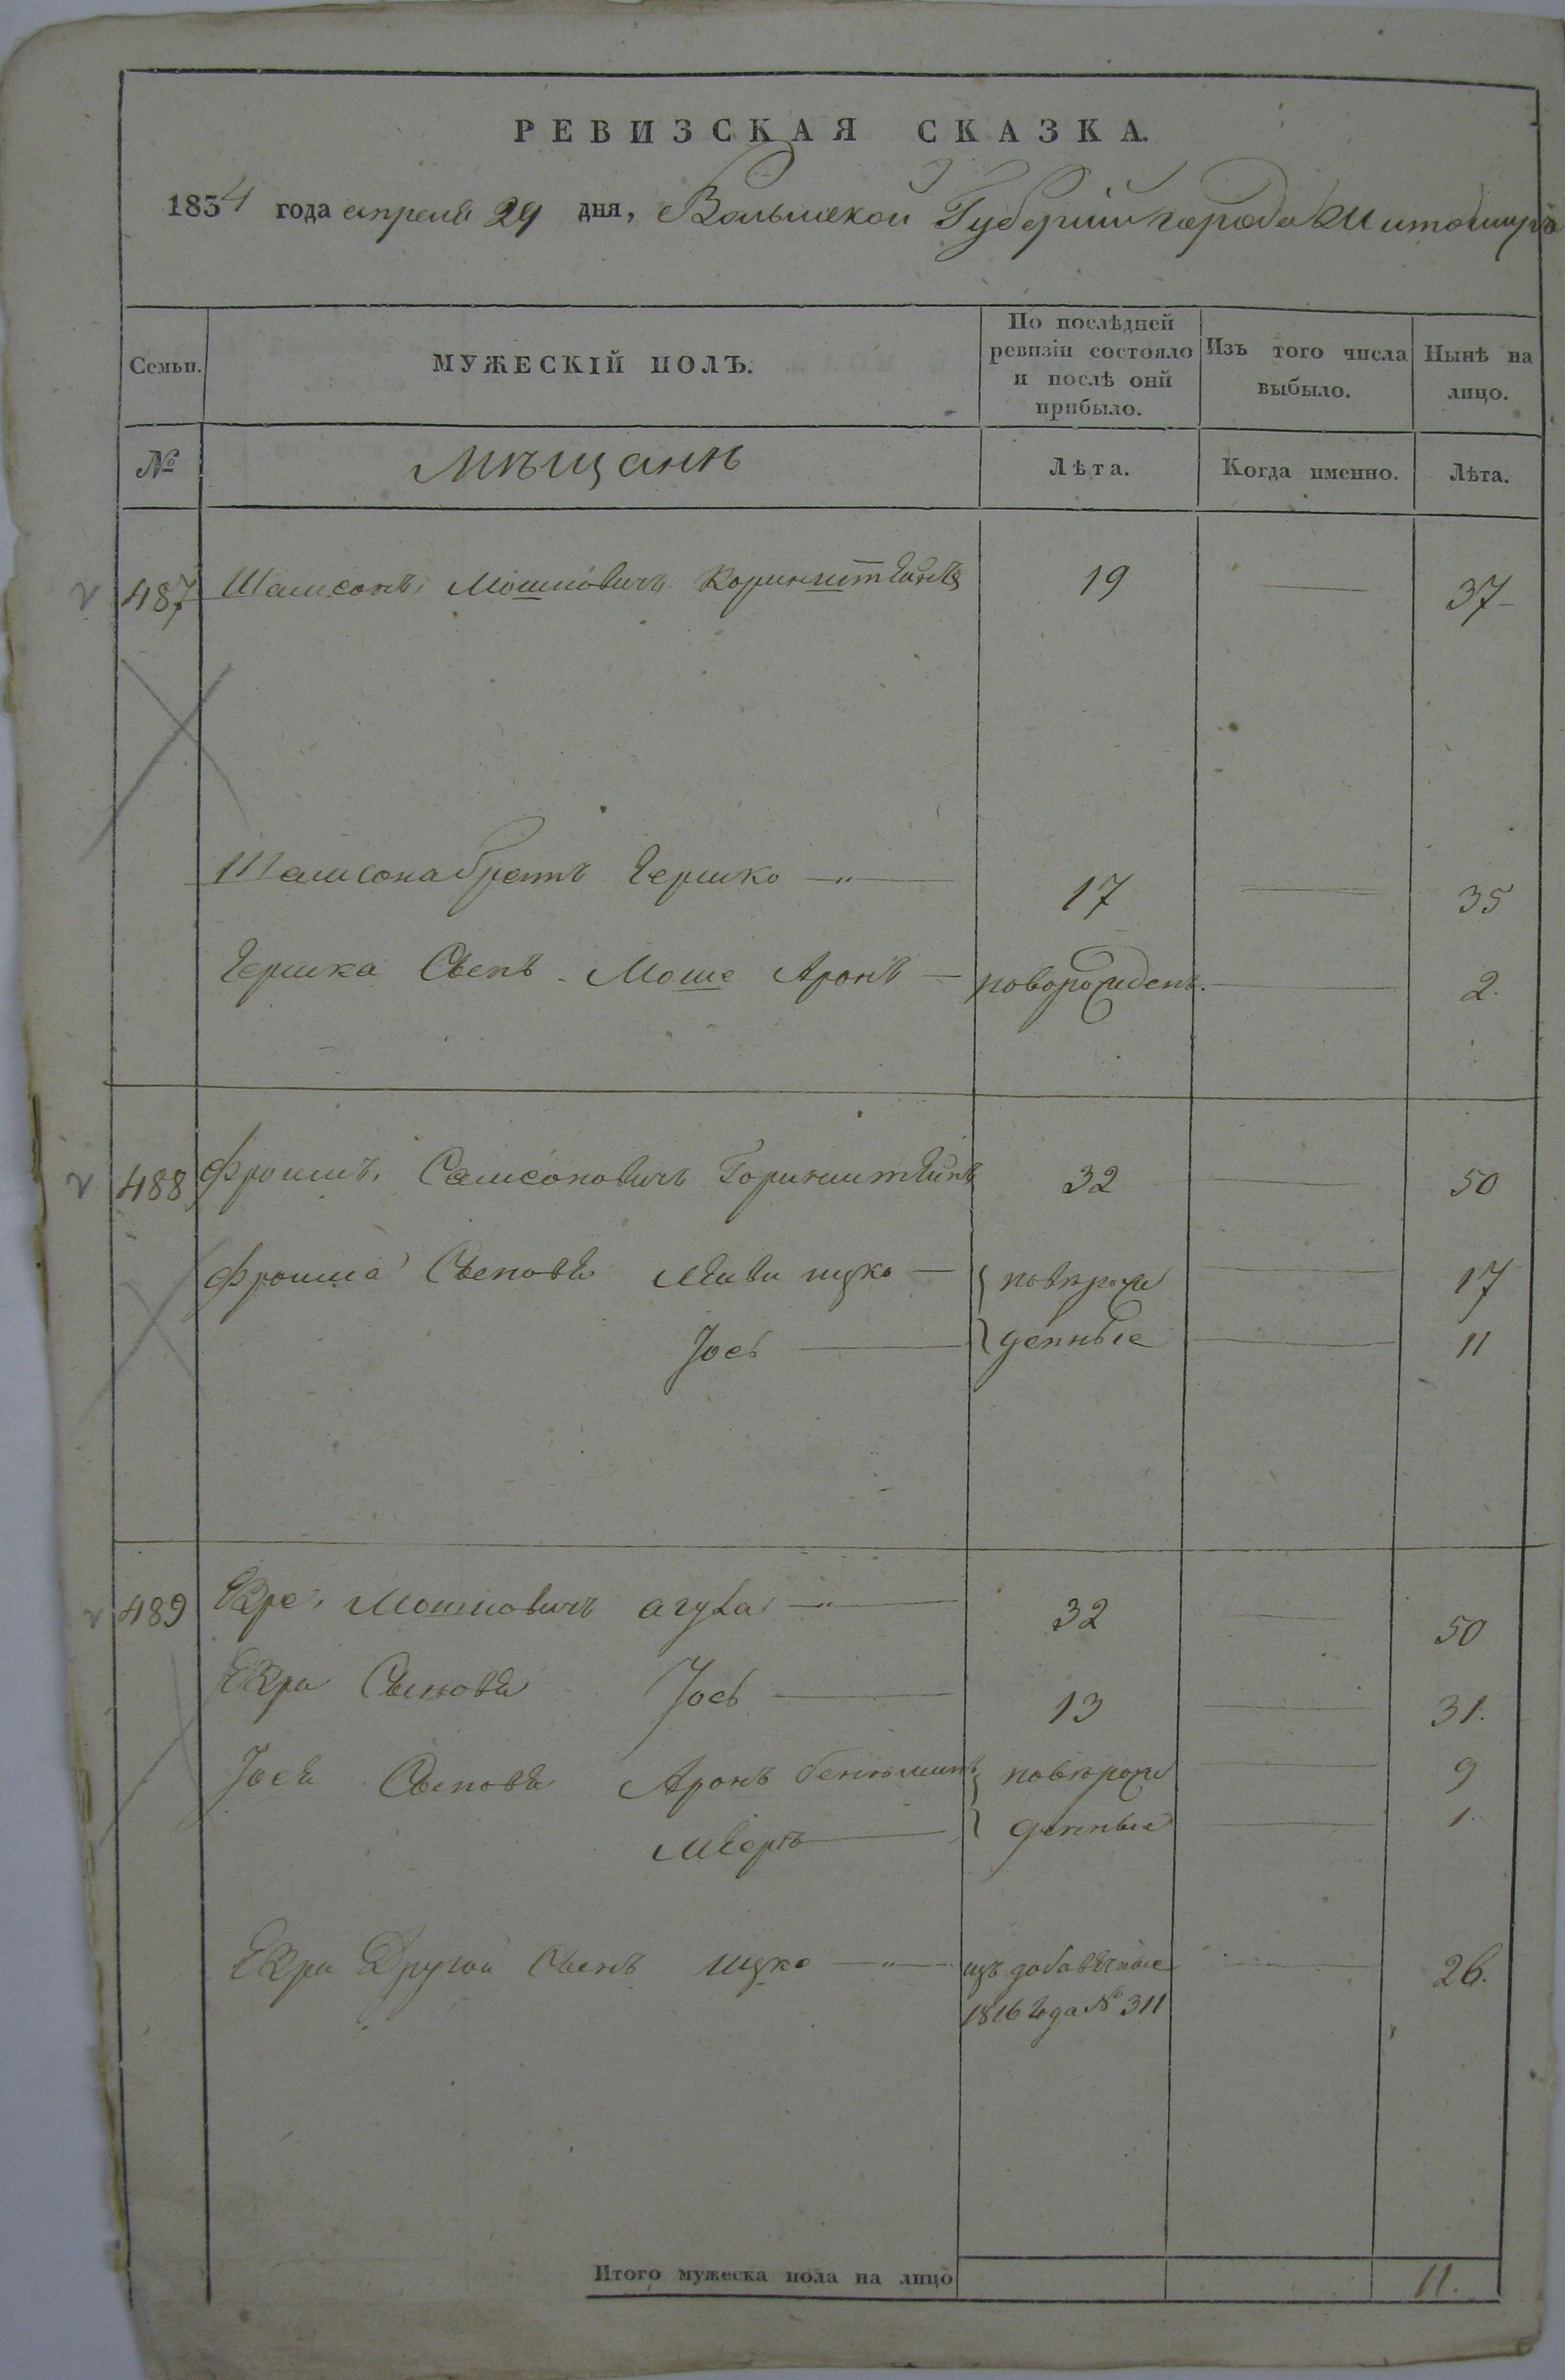 РЕВИЗСКАЯ СКАЗКА.
1834 года апреля 29 дня, Волынской Губернии города Житомира
Семьи. МУЖЕСКІЙ ПОЛЪ. По послѣдней ревизіи состояло и послѣ оной прибыло. Изъ того числа выбыло. Нынѣ на лицо.
№ Мѣщане Лѣта. Когда именно. Лѣта.
487 Шамсонъ Мошковичъ Коринштейнъ 19 — 37
Шамсона братъ Гершко — 17 — 35
Гершка Сынъ Моше Аронъ — новорожденъ. — 2.
488 Фроимъ Самсоновичъ Горинштейнъ 32 — 50
Фроима Сыновя Лейви ицко — новорож — 17
Іось — денные — 11
489 Мошковичъ — 32 — 50
Сыновя Іось — 13 — 31.
Іося Сыновя Аронъ бенюминъ новорож — 9
Мееръ — денные — 1.
Другой Сынъ ицко — изъ добавочные — 26.
1816 года № 311
Итого мужеска пола на лицо 11.